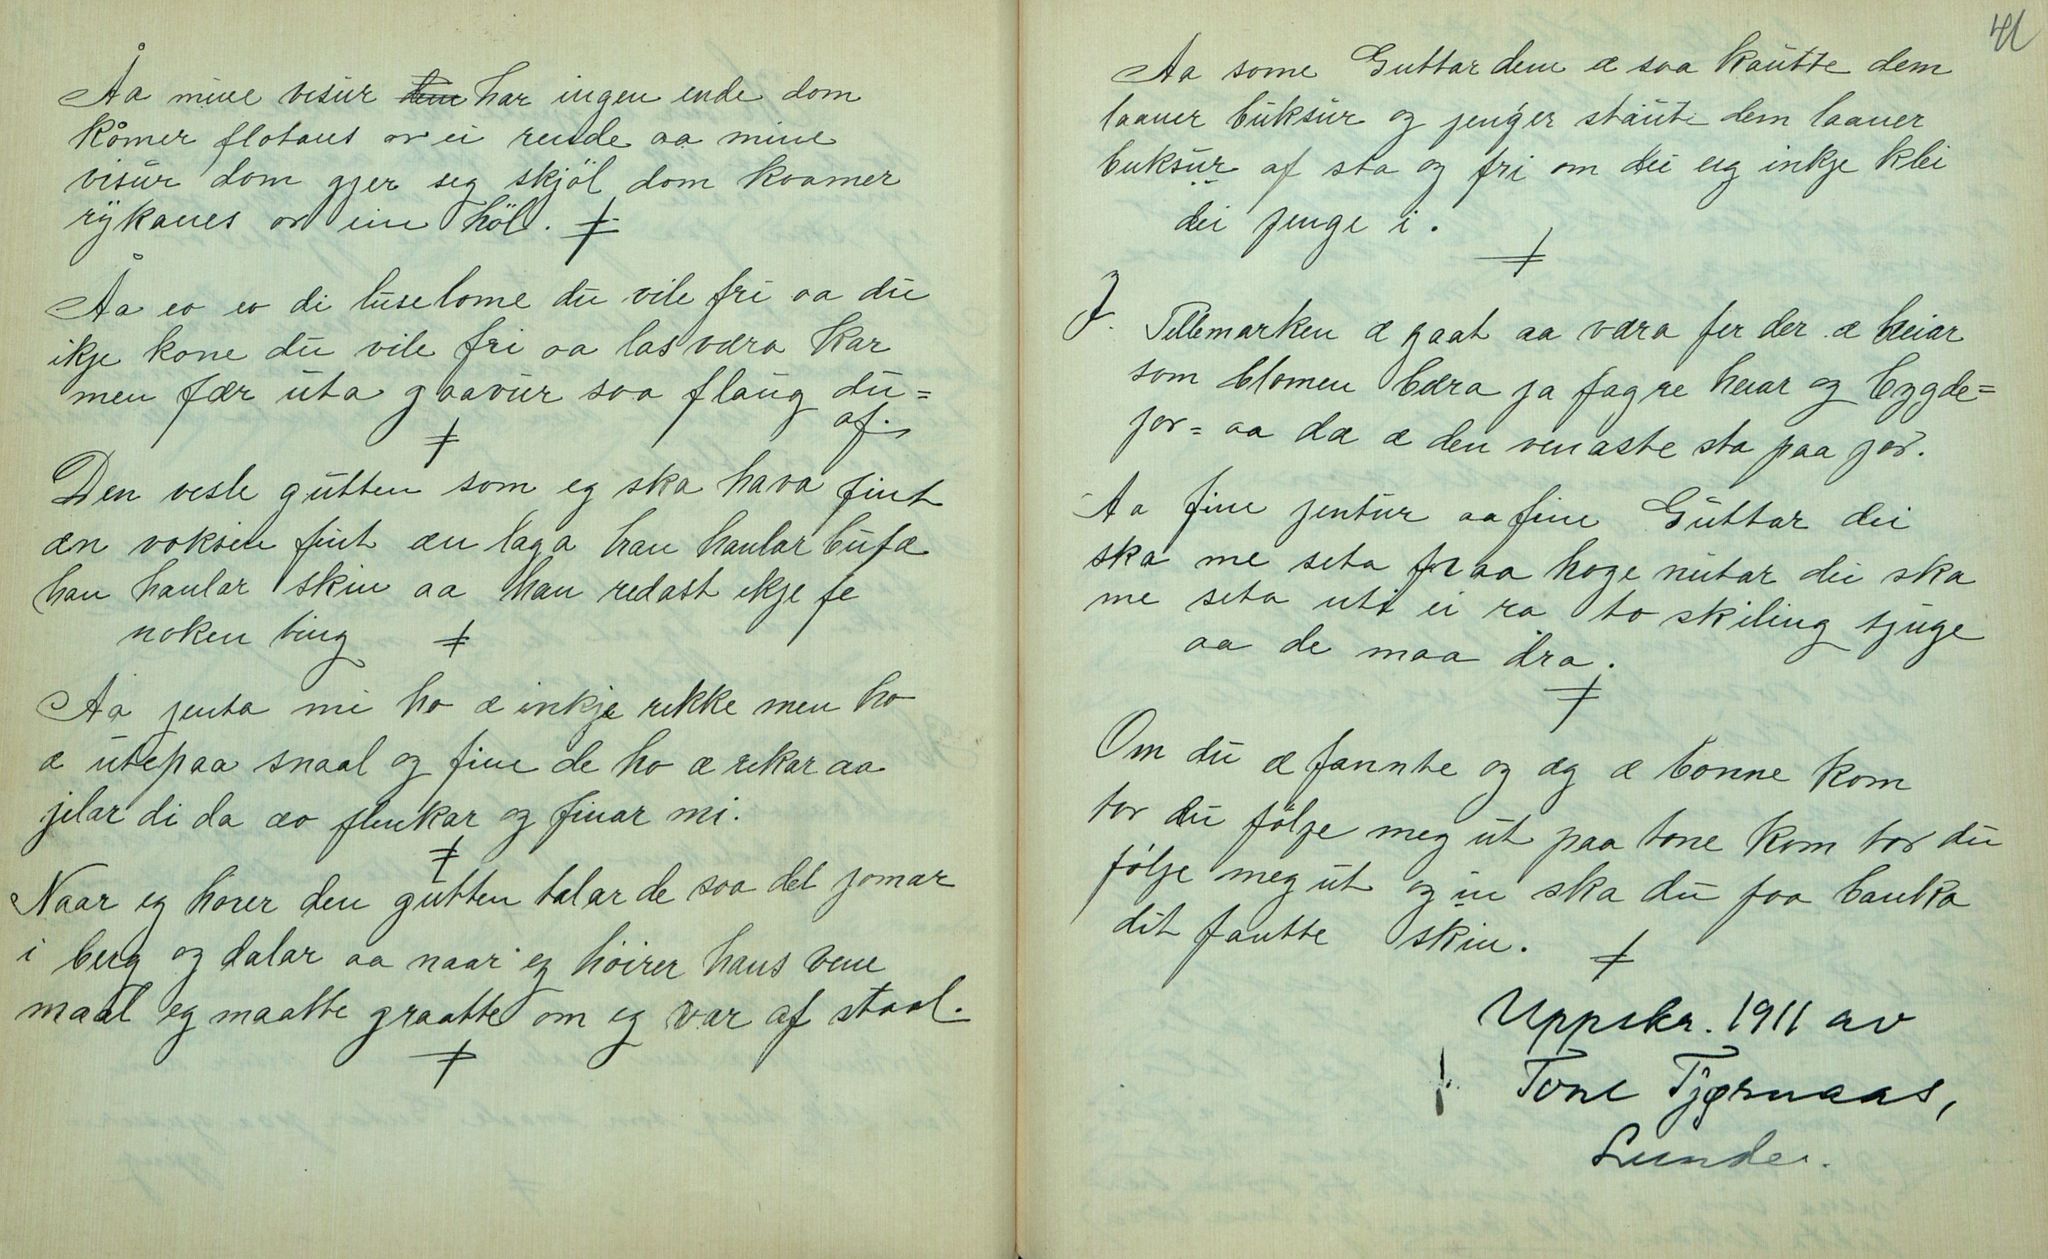 Åa mine visur dem har ingen ende dom
kåmer flotans or ei rende aa mine
visur dom gjer seg skjöl dom koamer
rykanes or ein höl.
Åa eo eo di luselome du vile fri aa du
ikje kone du vile fri aa las være kar
men fær uta gaavur saa flaug du=
af.
Den vesle gutten som eg ska hava fint
æn voksen fint æn laga han hanlar bufæ
han hanlar skin aa han redast ikje fe
noken ting
Aa jenta mi ho æ inkje rikke men ho
æ utepaa snaal og fine de ho æ rikar aa
jilar di da æo flinkar og finar mi.
Naar eg hører den gutten talar de saa det jomar
i berg og dalar aa naar eg höirer hans vene
maal eg maatte graatte om eg var af staal.
41
Aa some Guttar dem æ saa kautte dem
laaner buksur og penger staut dem laaner
buksur af sta og fri om dei eig inkje klei
dei penge i.
I. Tellemarken æ gaat aa væra fer der æ heiar
som blomen bæra ja fagre heiar og bygde=
jor= aa dæ æ den venaste sta paa jor.
Aa fine jentur aa fine Guttar dei
ska me seta fraa hoge nutar dei ska
me seta uti ei ra to skiling tjuge
aa de maa dra.
Om du æ fannte og æg æ bonne kom
tor du följe meg ut paa tone kom tor du
följe meg ut og in ska du faa banka
dit fantte skin.
Uppskr. 1911 av
Tone Tjørnaas,
Lunde.